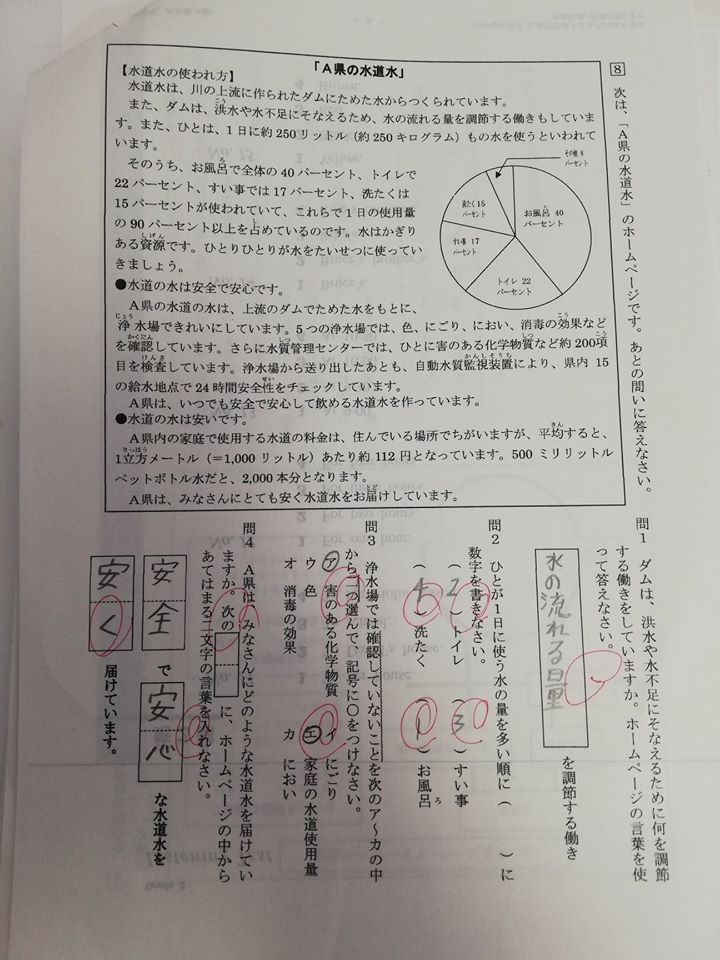 8
次は、「A県の水道水」のホームページです。あとの問いに答えなさい。
「A県の水道水」
【水道水の使われ方】
水道水は、川の上流に作られたダムにためた水からつくられています。
また、ダムは、洪水や水不足にそなえるため、水の流れる量を調節する働きもしています。また、ひとは、1日に約250リットル（約250キログラム）もの水を使うといわれて
います。
そのうち、お風呂で全体の40パーセント、トイレで
22パーセント、すい事では17パーセント、洗たくは
15パーセントが使われていて、これらで1日の使用量
の90パーセント以上を占めているのです。水はかぎり
ある資源です。ひとりひとりが水をたいせつに使ってい
きましょう。
その他 6
パーセント
お風呂 40
パーセント
洗たく 15
パーセント
すい事 17
パーセント
トイレ 22
パーセント
●水道の水は安全で安心です。
A県の水道の水は、上流のダムでためた水をもとに、
浄水場できれいにしています。5つの浄水場では、色、にごり、におい、消毒の効果など
を確認しています。さらに水質管理センターでは、ひとに害のある化学物質など約200項
目を検査しています。浄水場から送り出したあとも、自動水質監視装置により、県内15
の給水地点で24時間安全性をチェックしています。
A県は、いつでも安全で安心して飲める水道水を作っています。
●水道の水は安いです。
A県内の家庭で使用する水道の料金は、住んでいる場所でちがいますが、平均すると、
1立方メートル（＝1,000リットル）あたり約112円となっています。500ミリリットル
ペットボトル水だと、2,000本分となります。
A県は、みなさんにとても安く水道水をお届けしています。
問1 ダムは、洪水や水不足にそなえるために何を調節
する働きをしていますか。ホームページの言葉を使
って答えなさい。
水の流れる量
を調節する働き
問2 ひとが1日に使う水の量を多い順に（ ）に
数字を書きなさい。
（2）トイレ （3）すい事
（4）洗たく （1）お風呂
問3 浄水場では確認していないことを次のア〜カの中
から二つ選んで、記号に○をつけなさい。
ア 害のある化学物質 イ にごり
ウ 色 エ 家庭の水道使用量
オ 消毒の効果 カ におい
問4 A県は、みなさんにどのような水道水を届けてい
ますか。次の に、ホームページの中から
あてはまる二文字の言葉を入れなさい。
安全で安心な水道水を
安く届けています。